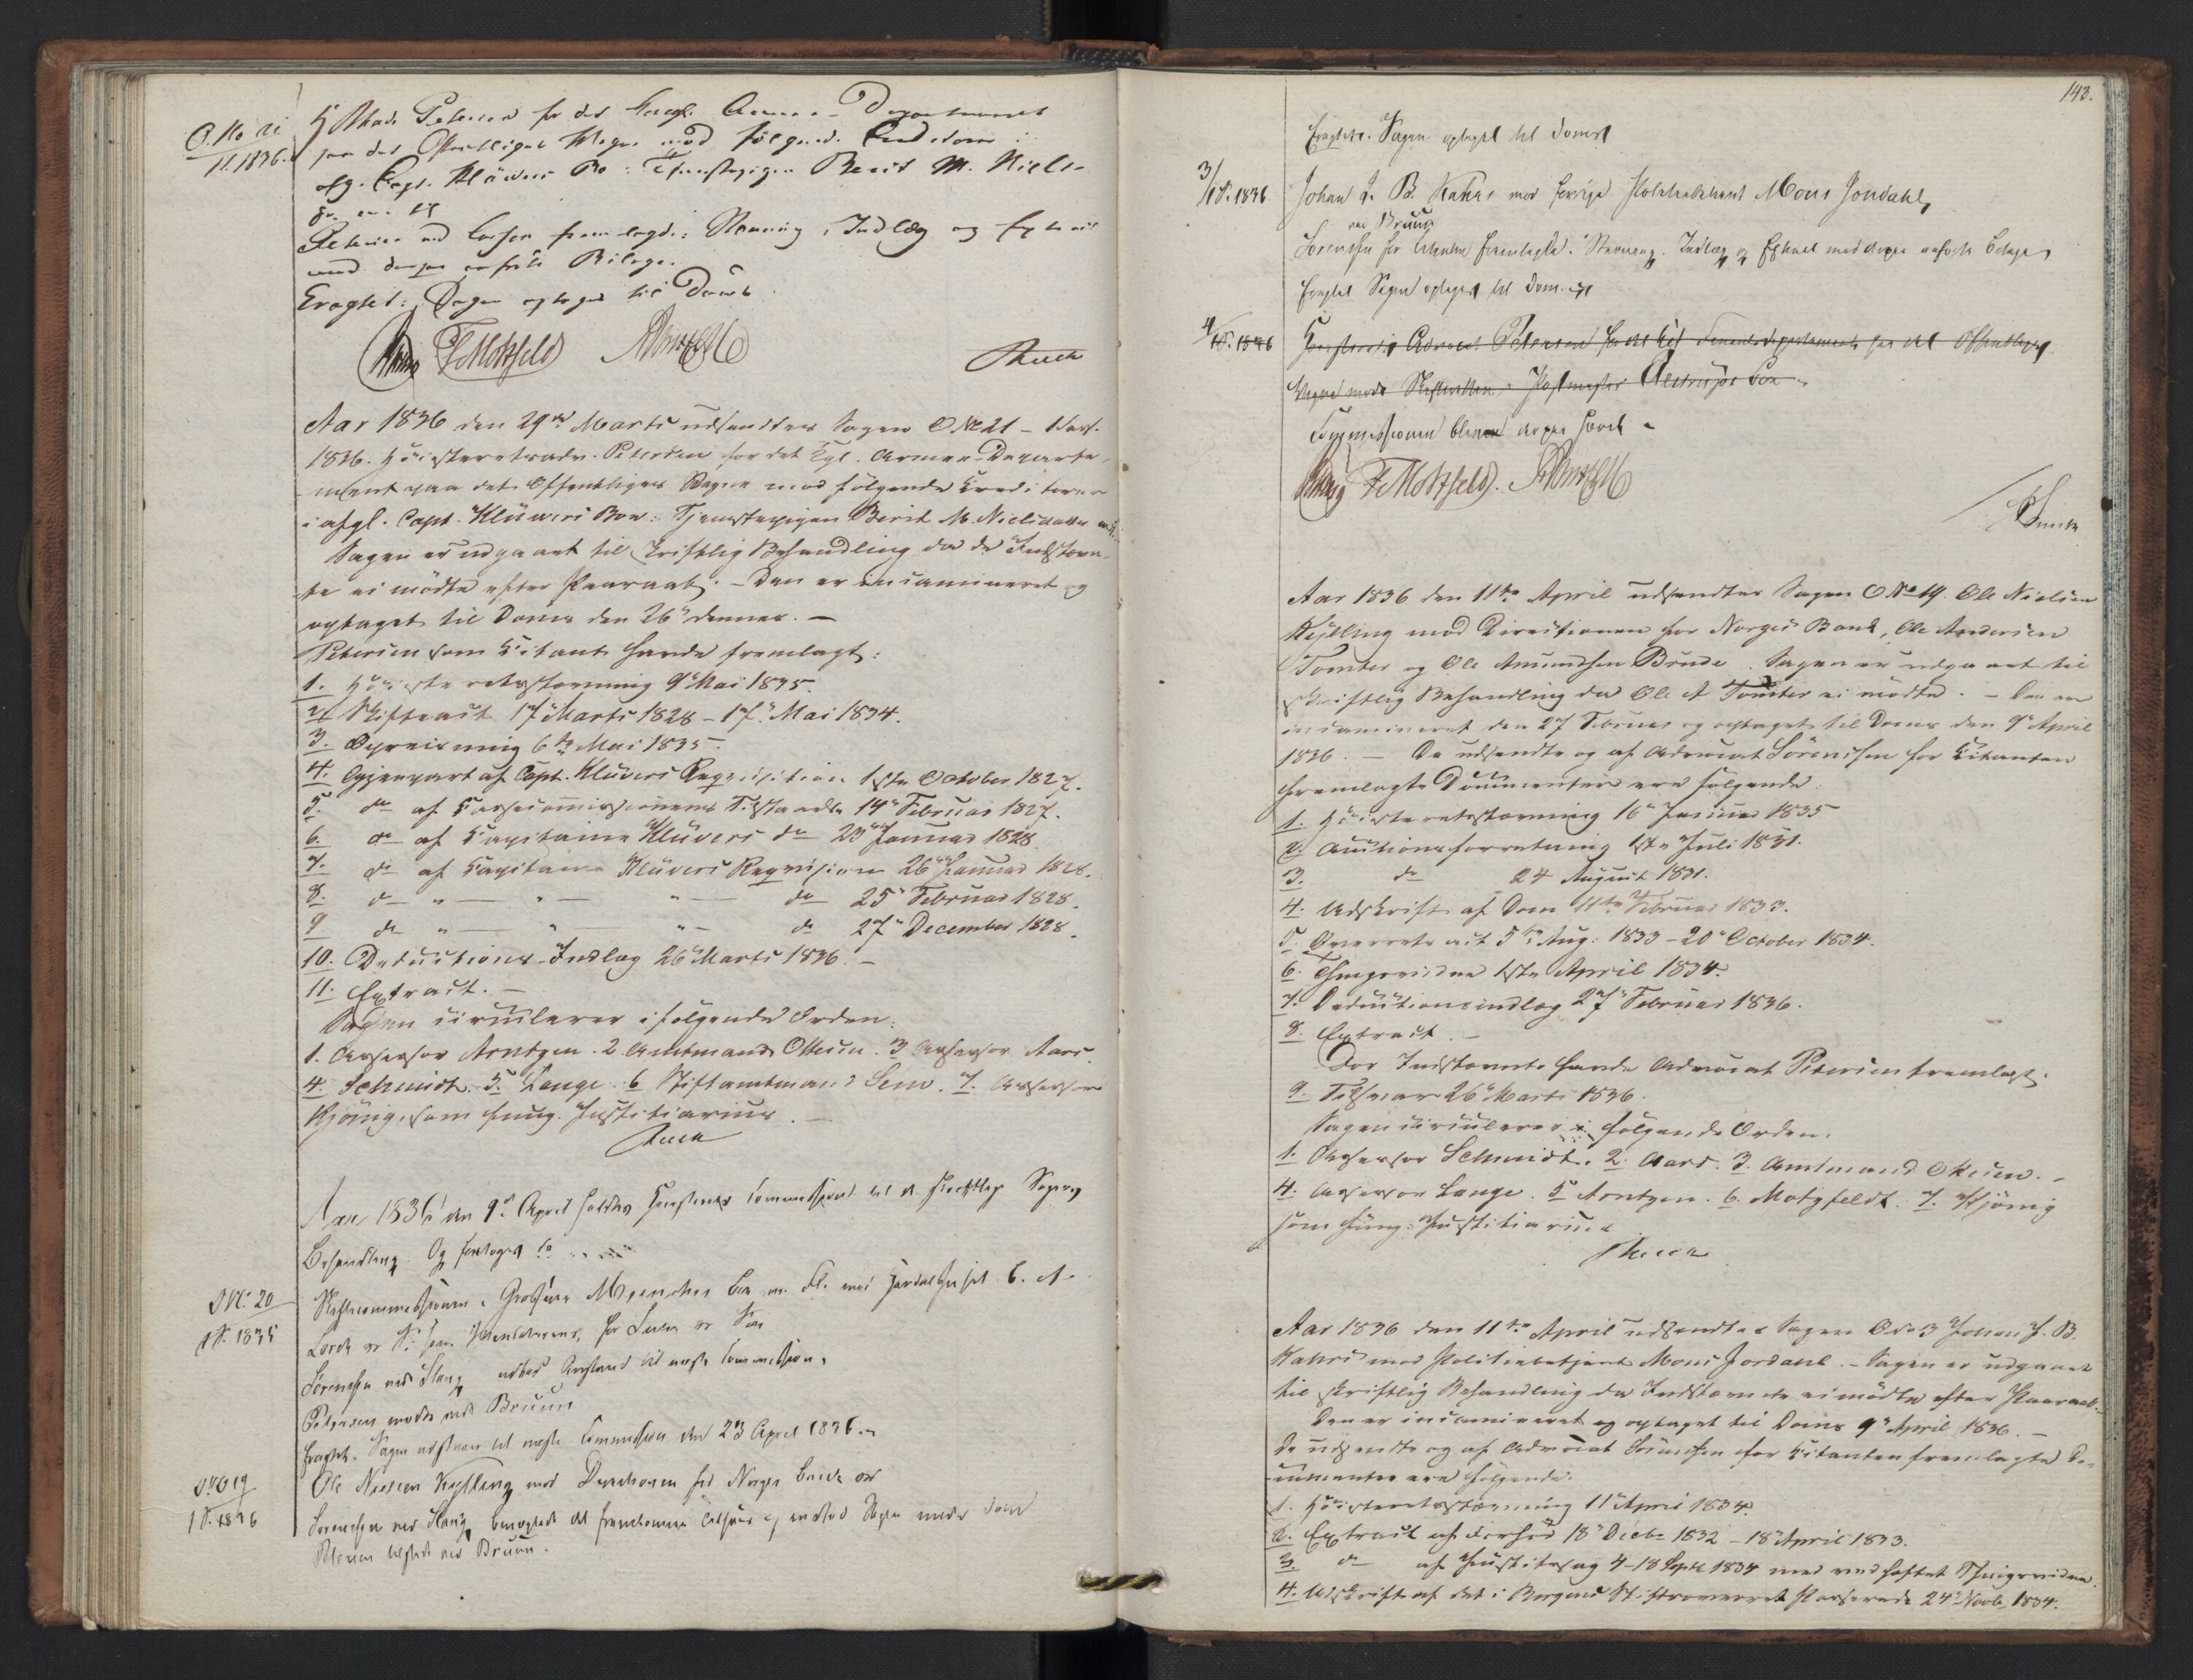 O. No 21
1 S. 1836.
HAdv. Petersen for det Kongl. Armee-Departement
paa det Offentliges Vegne mod følgende Creditorer i
afg. Capt. Klüwers Bo: Tjenestepigen Berit M. Niels-
Petersen ved Larsen fremlagde: Stævning, Indlæg og Extract
med deri paaførte Bilage.
Eragtet: Sagen optages til Doms
Motzfeldt
Aar 1836 den 29de Marts udsendtes Sagen O No 21 - 1 Sess.
1836. Høiesteretsadv. Petersen for det Kgl. Armee-Departe-
ment paa det Offentliges Vegne mod følgende Creditorer
i afgl. Capt. Klüwers Boe: Tjenestepigen Berit M. Nielsdatter m. fl.
Sagen er udgaaet til skriftlig Behandling da de Indstævn-
te ei mødte efter Paaraab. - Den er incamineret og
optaget til Doms den 26de dennes. -
Petersen som Citant havde fremlagt:
1. Høiesteretsstævning 9de Mai 1835.
2. Skifteact 17 Marts 1828 - 17de Mai 1834.
3. Opreisning 6te Mai 1835.
4. Gjenpart af Capt. Klüvers Reqvisition 1ste October 1827.
5. do af Cassecommissionens Tilstaaelse 14de Februar 1827.
6. do af Capitaine Klüvers do 23de Januar 1828.
7. do af Capitaine Klüvers Reqvisition 26de Januar 1828.
8. do " — " — " — do 25de Februar 1828.
9 do " — " — " — do 27de December 1828.
10. Deductions-Indlæg 26de Marts 1836. -
11. Extract. -
Sagen circulerer i følgende Orden:
1. Assessor Arntzen. 2. Amtmand Ottesen. 3 Assessor Aars.
4. Schmidt. 5. Lange. 6 Stiftamtmand Sem. 7. Assessor
Kjønig, som fung. Justitiarius. -
Aar 1836 den 9de April holdtes Høiesterets Commission til de skriftlige Sagers
Behandling. Og foretoges da
O No. 20
1 S. 1835
Skiftecommissionen i Grosserer Boe m. Fl. mod Handelshuset C. A.
Sørenssen ved Stang udbad Anstand til næste Commission.
Petersen mødte ved Bruun
Eragtet. Sagen udsættes til næste Commission den 23 April 1836.
O No 19
1 S. 1836
Ole Nielsen Kydling mod Directionen for Norges Bank
Sørenssen ved Stang
Petersen tilstede ved Bruun.
143.
Eragtet. Sagen optaget til Doms
3/
1 S. 1836.
Johan J. B. Kahrs mod forrige Politiebetjent Mons Jordahl,
ved Bruun
Sørenssen for Citanten fremlagde: Stævning. Indlæg og Extract med deri anførte Bilage
Eragtet Sagen optaget til Doms
4/
1 S. 1836
Høiesterets Advocat Petersen for det Kgl Finantsdepartement paa det Offentliges
Vegne mod Skifteretten i Postmester Boe
Commissionen blev derpaa hævet.
Motzfeldt.
Aar 1836 den 11te April udsendtes Sagen O No 19. Ole Nielsen
Kydling mod Directionen for Norges Bank, Ole Andersen
Tomter og Ole Amundsen Brude. Sagen er udgaaet til
skriftlig Behandling da Ole A Tomter ei mødte. - Den er
incamineret den 27 Februar og optaget til Doms den 9de April
1836. - De udsendte og af Advocat Sørenssen for Citanten
fremlagte Documenter ere følgende:
1. Høiesteretsstævning 16de Januar 1835
2. Auctionsforretning 1ste Juli 1831.
3. do 24 August 1831.
4. Udskrift af Dom 11te Februar 1833.
5. Overretsact 5te Aug: 1833 - 20de October 1834.
6. Thingsvidne 1ste April 1834.
7. Deductionsindlæg 27de Februar 1836.
8. Extract. -
For Indstævnte havde Advocat Petersen fremlagt:
9. Tilsvar 26de Marts 1836.
Sagen circulerer i følgende Orden:
1. Assessor Schmidt. 2. Aars. 3. Amtmand Ottesen. -
4. Assessor Lange. 5. Arntzen. 6. Motzfeldt. 7. Kjønig
som fung: Justitiarius
Aar 1836 den 11te April udsendtes Sagen O No 3 Johan J. B.
Kahrs mod Politiebetjent Mons Jordahl. - Sagen er udgaaet
til skriftlig Behandling da Indstævnte ei mødte efter Paaraab. -
Den er incamineret og optaget til Doms 9de April 1836. -
De udsendte og af Advocat Sørenssen for Citanten fremlagte Do-
cumenter ere følgende:
1. Høiesteretsstævning 11te April 1834.
2. Extract af Forhør 18de Decbr 1832 - 18de April 1833.
3. do af Justitssag 4-18 Septbr 1834 med vedhæftet Thingsvidne.
4. Udskrift af det i Bergens Stiftsoverret Passerede 24de Novbr 1834.